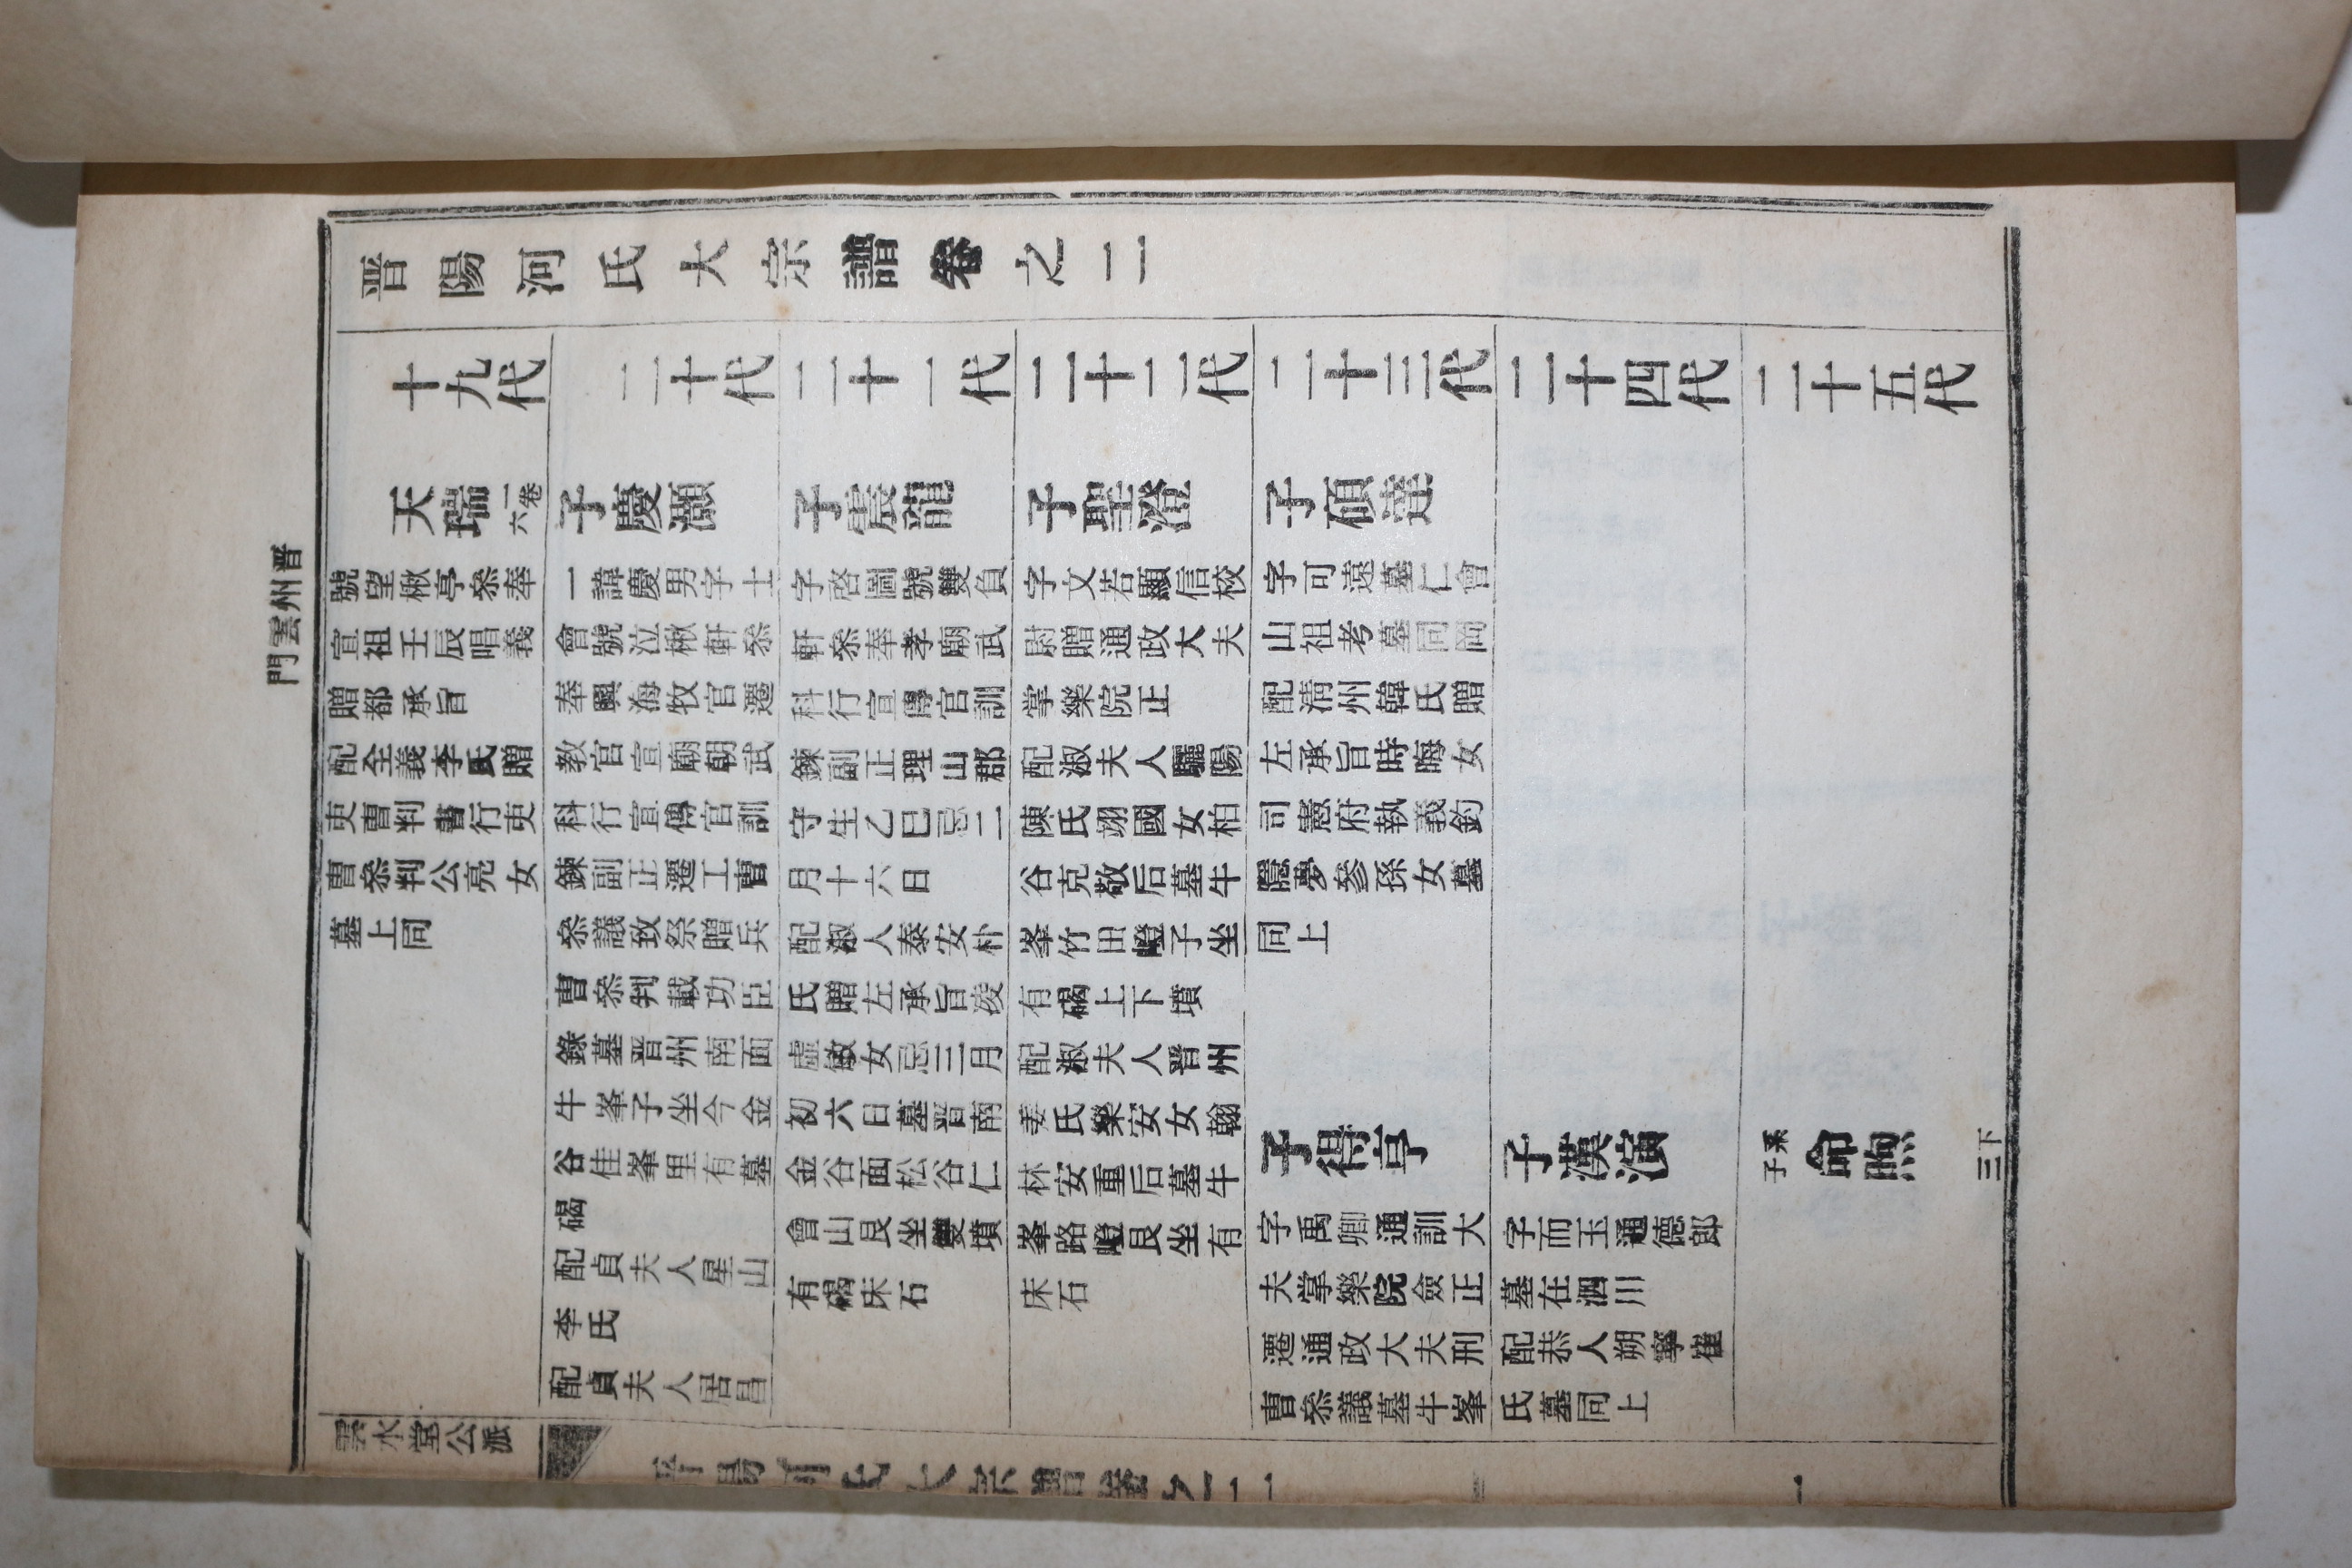 晋州雲門
晋陽河氏大宗譜卷之二
十九代
天瑞
一卷
六
號望楸亭叅奉
宣祖壬辰唱義
贈都承旨
配全義李氏贈
吏曹判書行吏
曹叅判公亮女
墓上同
二十代
子慶灝
一諱慶男字士
會號泣楸軒叅
奉興海牧官遷
教官宣廟朝武
科行宣傳官訓
鍊副正遷工曹
叅議致祭贈兵
曹叅判載功臣
錄墓晋州南面
牛峯子坐今金
谷佳峯里有墓
碣
配貞夫人星山
李氏
配貞夫人居昌
二十一代
子震龍
字啓圖號雙負
軒叅奉孝廟武
科行宣傳官訓
鍊副正理山郡
守生乙巳忌二
月十六日
配淑人泰安朴
氏贈左承旨凌
虛敏女忌三月
初六日墓晋南
金谷面松谷仁
會山艮坐雙墳
有碣床石
二十二代
子聖澄
字文若顯信校
尉贈通政大夫
掌樂院正
配淑夫人驪陽
陳氏翊國女柏
谷克敬后墓牛
峯竹田嶝子坐
有碣上下墳
配淑夫人晋州
姜氏樂安女翰
林安重后墓牛
峯路嶝艮坐有
床石
二十三代
子碩達
字可遠墓仁會
山祖考墓同岡
配淸州韓氏贈
左承旨時晦女
司憲府執義釣
隱夢參孫女墓
同上
子得亨
字禹卿通訓大
夫掌樂院僉正
遷通政大夫刑
曹叅議墓牛峯
二十四代
子漢演
字而玉通德郎
墓在泗川
配恭人朔寧崔
氏墓同上
二十五代
系子
命煦
下三
雲水堂公派
晋陽河氏大宗譜卷之二
一